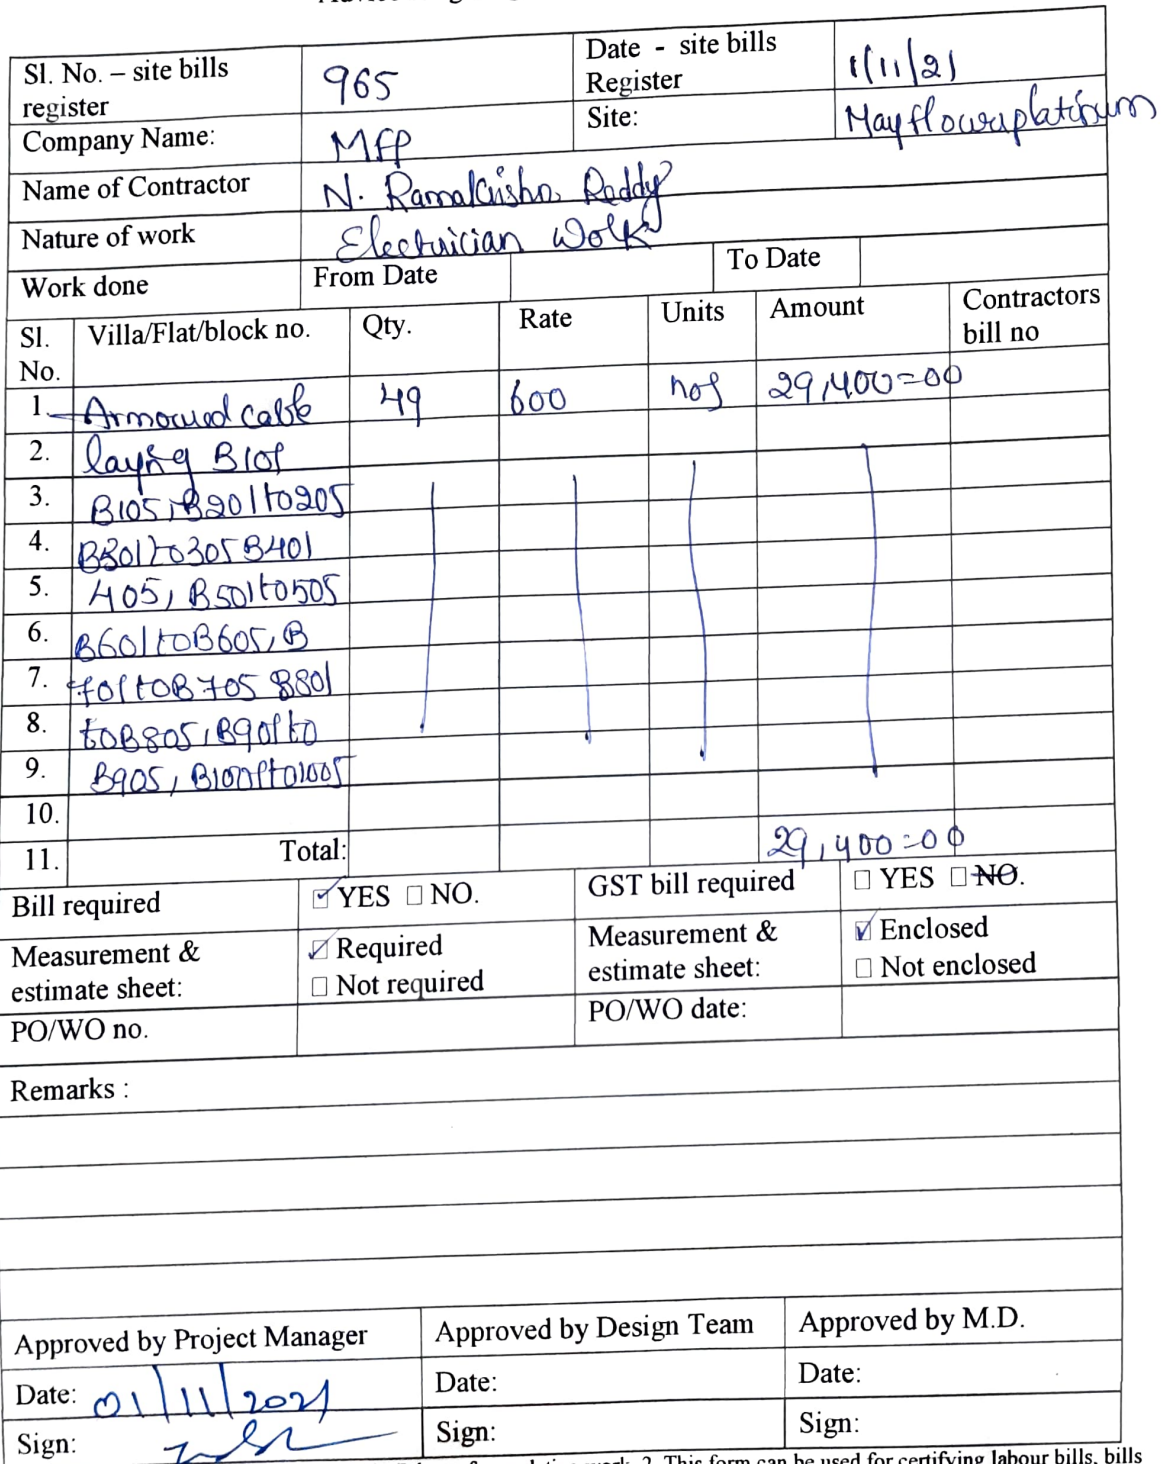 Sl. No. – site bills register 965 Date - site bills Register 1/11/21
Company Name: MFP Site: Mayflowerplatinum
Name of Contractor N. Ramakrishna Reddy
Nature of work Electrician Work
Work done From Date To Date
Sl. No. Villa/Flat/block no. Qty. Rate Units Amount Contractors bill no
1. Armoured cable 49 600 nos 29,400=00
2. laying B101
3. B105, B201 to 205
4. B301 to 305 B401
5. 405, B501 to 505
6. B601 to B605, B
7. 701 to B705 B801
8. to B805, B901 to
9. B905, B1001 to 1005
10.
11. Total: 29,400=00
Bill required ☑ YES ☐ NO. GST bill required ☐ YES ☐ NO.
Measurement & estimate sheet: ☑ Required ☐ Not required Measurement & estimate sheet: ☑ Enclosed ☐ Not enclosed
PO/WO no. PO/WO date:
Remarks :
Approved by Project Manager Approved by Design Team Approved by M.D.
Date: 01/11/2021 Date: Date:
Sign: Sign: Sign:
2. This form can be used for certifying labour bills, bills